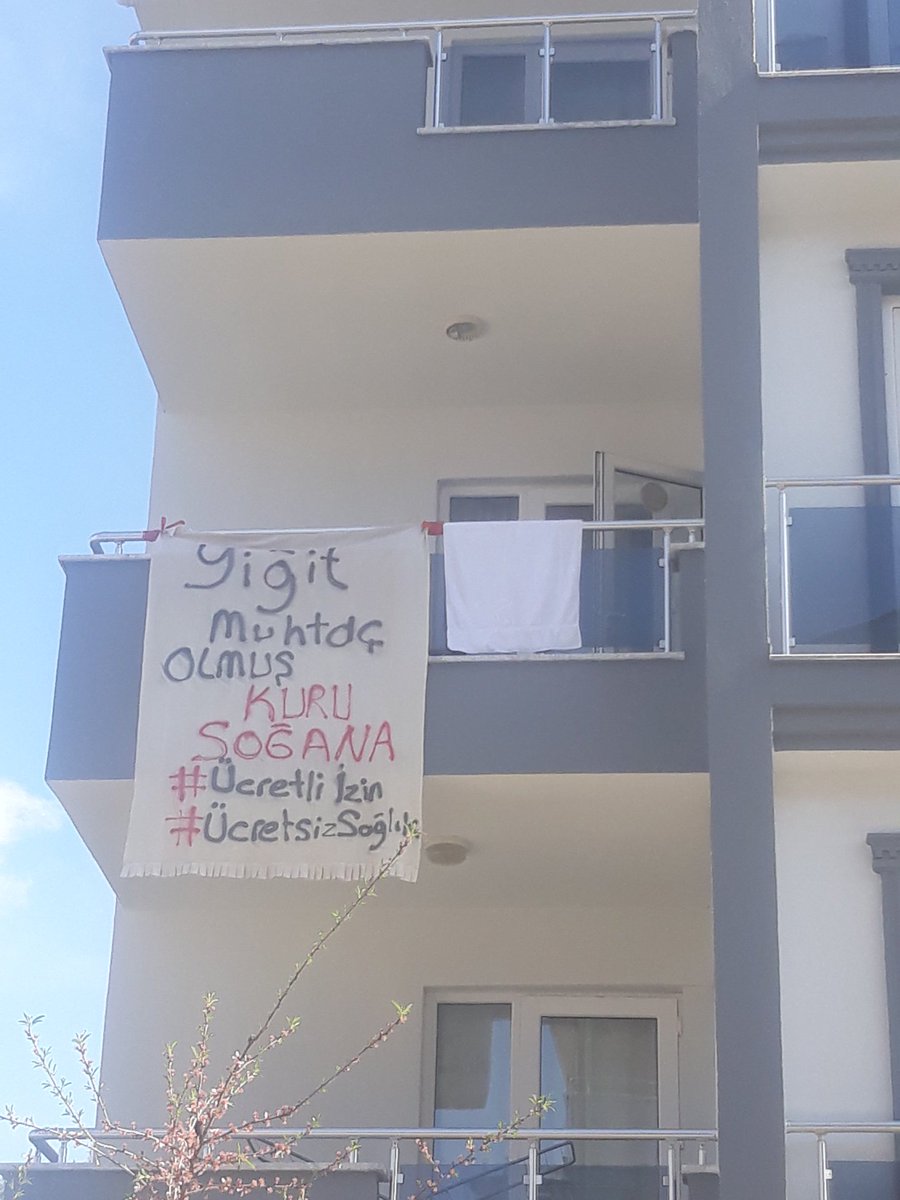 yiğit
muhtaç
OLMUŞ
KURU
SOĞANA
#Ücretli İzin
#ÜcretsizSağlık